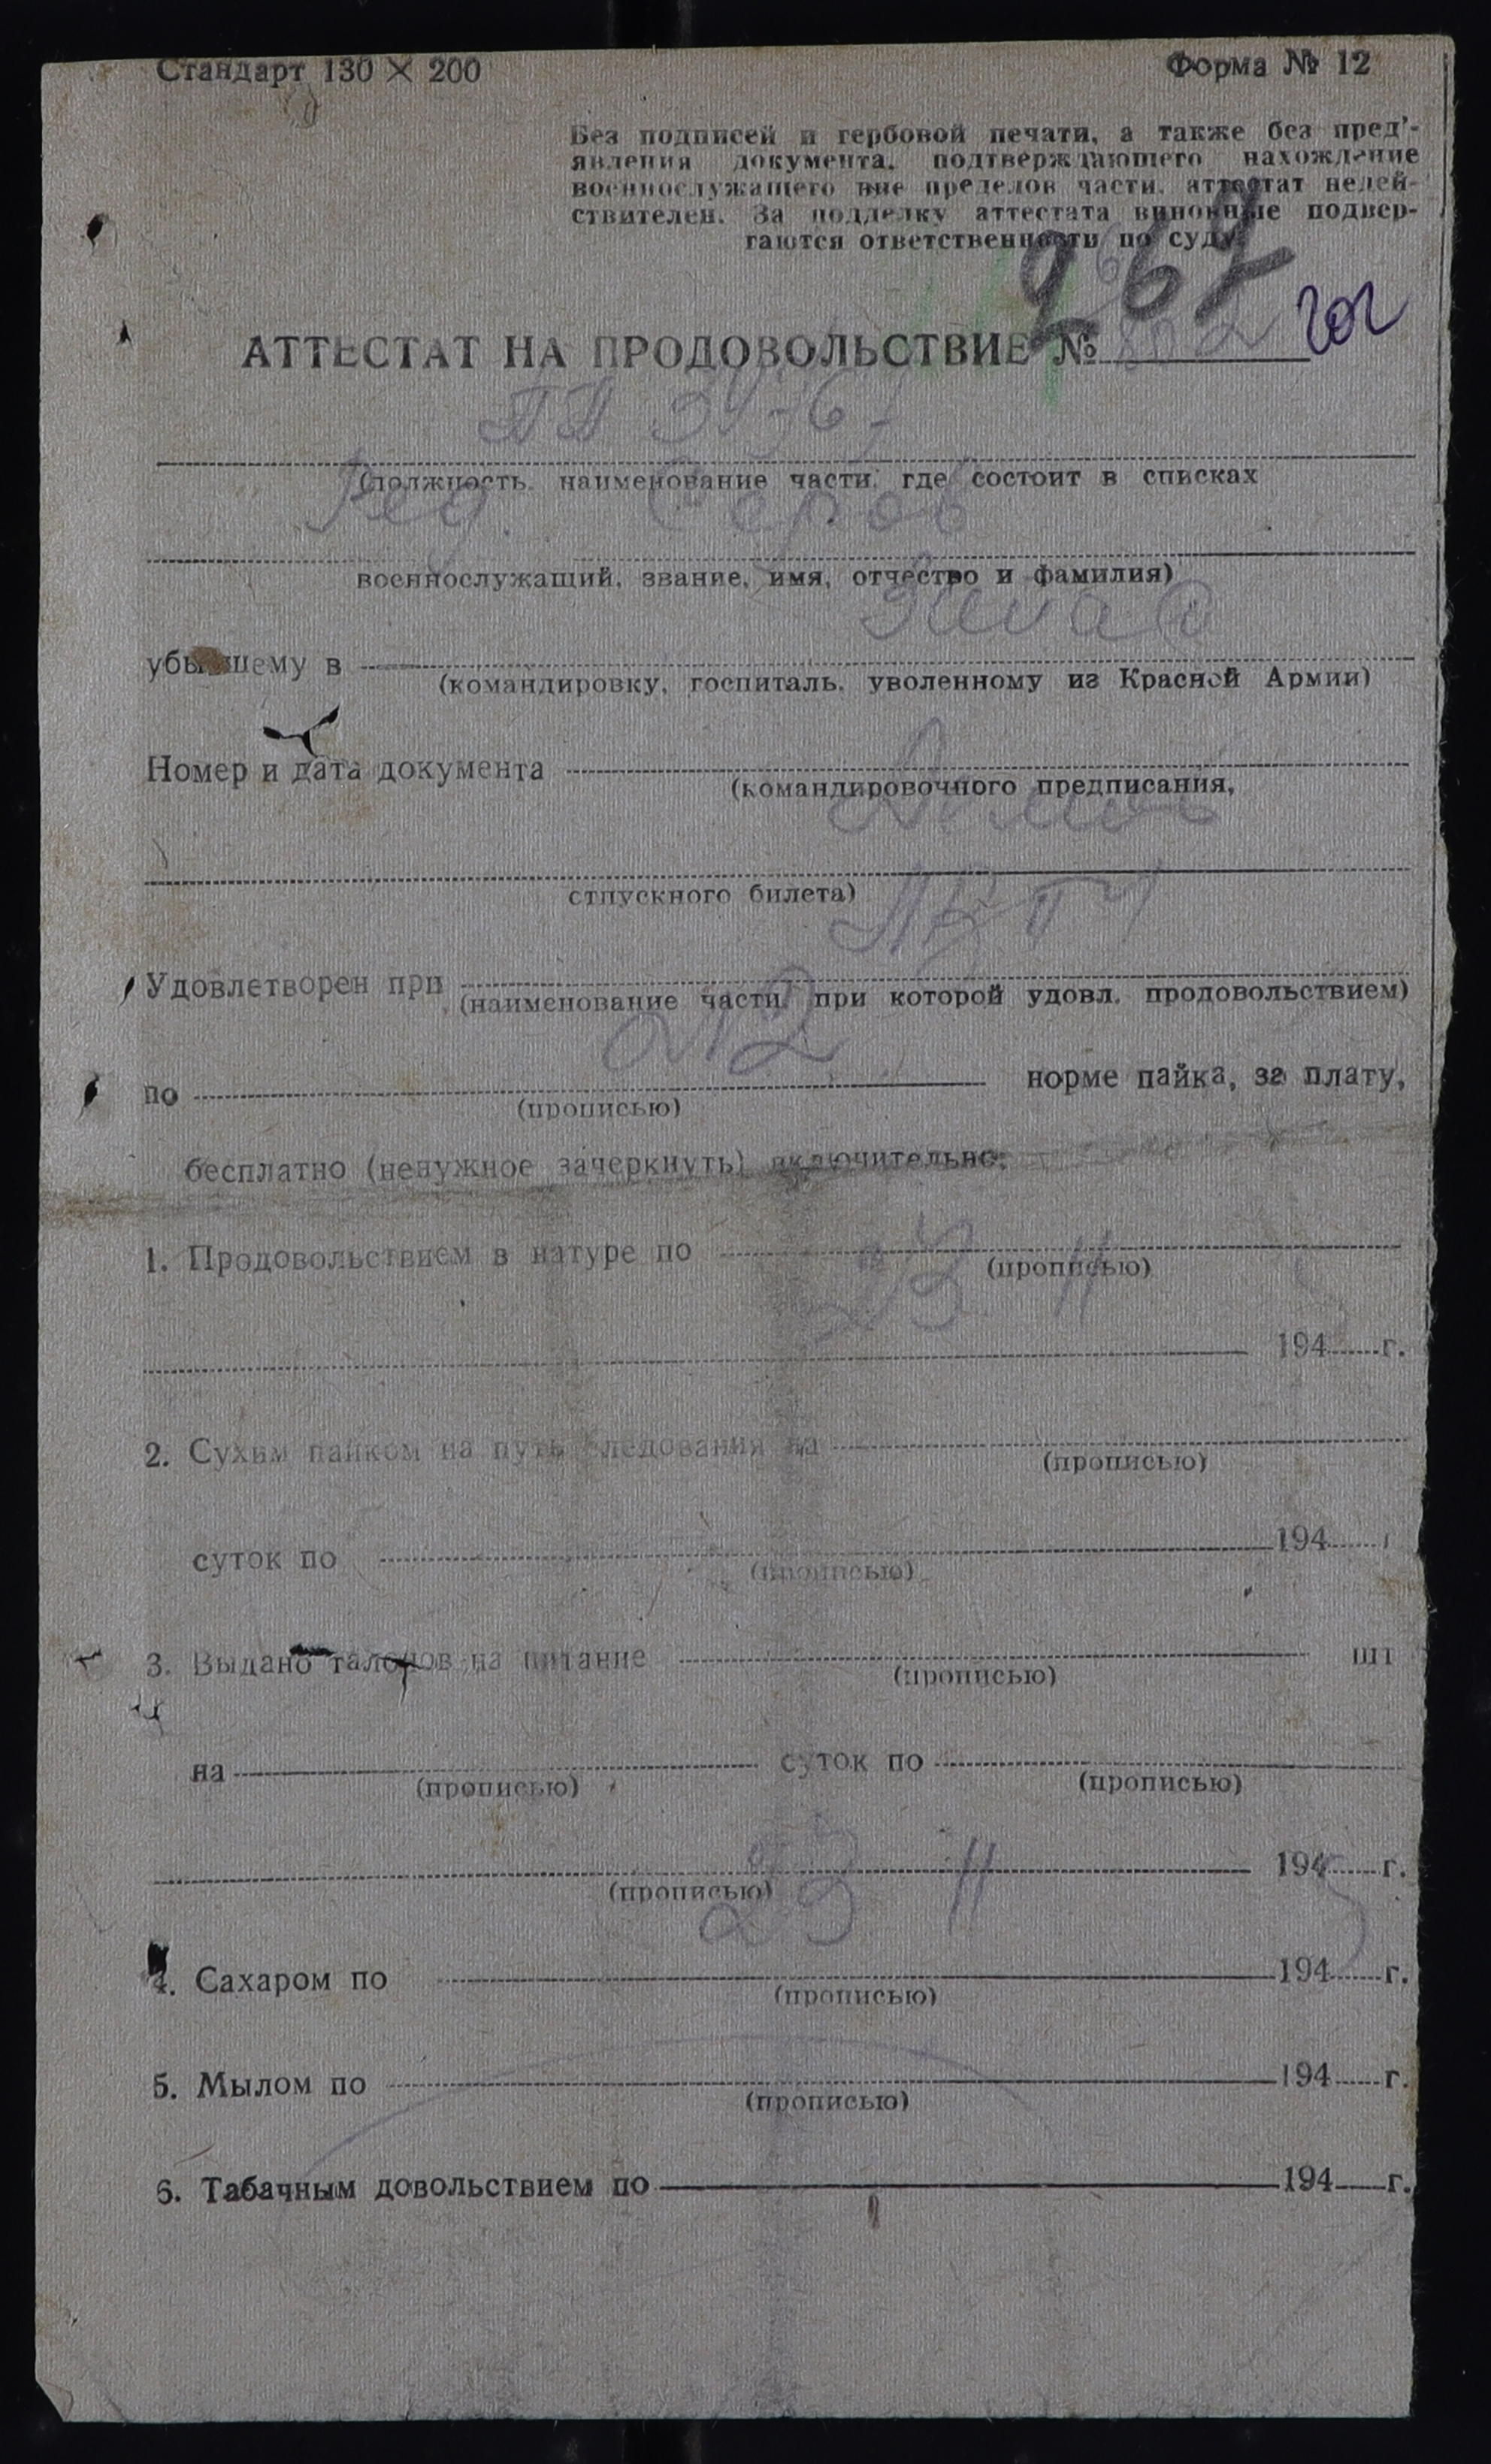 Стандарт 130 × 200
Форма № 12
Без подписей и гербовой печати, а также без пред'-
явления документа, подтверждающего нахождение
военнослужащего вне пределов части, аттестат недей-
ствителен. За подделку аттестата виновные подвер-
гаются ответственности по суду.
267
АТТЕСТАТ НА ПРОДОВОЛЬСТВИЕ №
202
ПП 34767
(должность, наименование части, где состоит в списках
Ряд. Серов
военнослужащий, звание, имя, отчество и фамилия)
убывшему в
(командировку, госпиталь, уволенному из Красной Армии)
Номер и дата документа
(командировочного предписания,
отпускного билета)
Удовлетворен при
(наименование части, при которой удовл. продовольствием)
по №2 норме пайка, за плату,
(прописью)
бесплатно (ненужное зачеркнуть) включительно:
1. Продовольствием в натуре по
(прописью)
23 II 194 5 г.
2. Сухим пайком на путь следования на
(прописью)
суток по 194 г
(прописью)
3. Выдано талонов на питание шт
(прописью)
на суток по
(прописью) (прописью)
194 г.
(прописью)
4. Сахаром по 23 II 194 5 г.
(прописью)
5. Мылом по 194 г.
(прописью)
6. Табачным довольствием по 194 г.